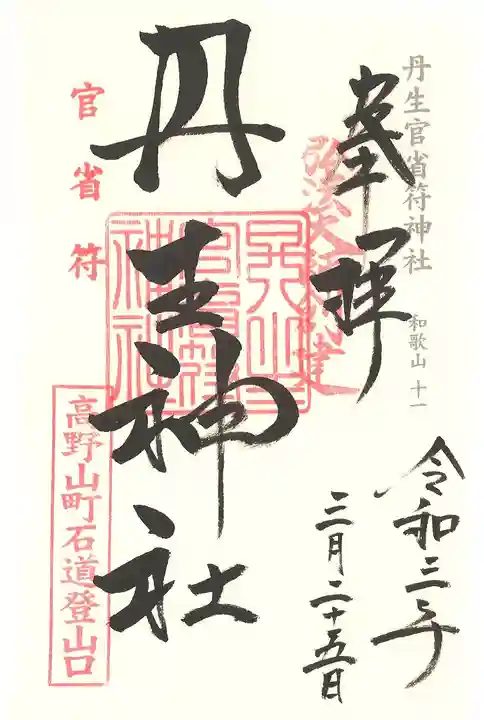 丹生官省符神社
和歌山 十一
奉拝
弘法大師創建
令和三年
三月二十五日
丹生神社
官省符
丹生官省符神社
高野山町石道登山口